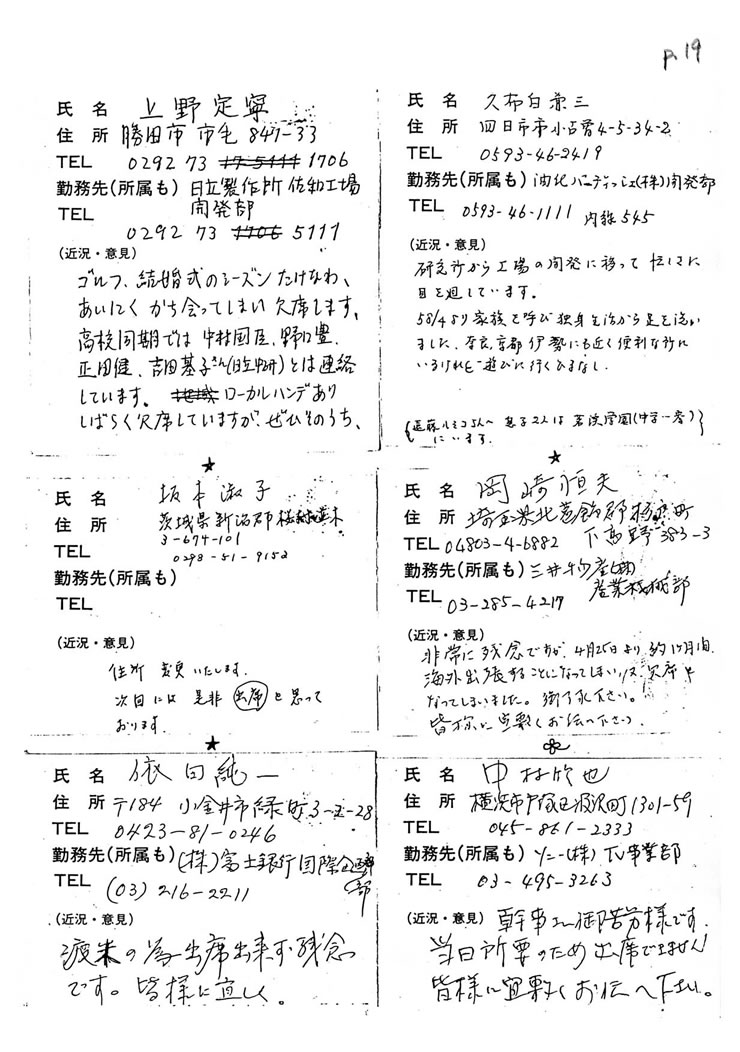 p.19
氏 名 上野定寧
住 所 勝田市 市毛 847-33
TEL 0292 73 1706
勤務先(所属も) 日立製作所 佐和工場
開発部
TEL 0292 73 5111
(近況・意見)
ゴルフ、結婚式のシーズンたけなわ、
あいにく かち合ってしまい 欠席します。
高校同期では 中村国臣、野口豊、
正田健、吉田基子さん(日立中研)とは連絡
しています。 ローカルハンデあり
しばらく欠席していますが、ぜひそのうち、
氏 名 久布白兼三
住 所 四日市市小古曽4-5-34-2
TEL 0593-46-2419
勤務先(所属も) 油化バーディッシェ(株)開発部
TEL 0593-46-1111 内線 545
(近況・意見)
研究所から工場の開発に移って 忙しさに
目を廻しています。
58/4より家族を呼び 独身生活から足を洗い
ました。奈良、京都 伊勢にも近く便利な所に
いるけれど 遊びに行くひまなし。
{遠藤ルミコさんへ 息子2人は 若渓学園(中学一考)
にいます。}
★
氏 名 坂本淑子
住 所 茨城県新治郡桜村並木
3-674-101
TEL 0298-51-9152
勤務先(所属も)
TEL
(近況・意見)
住所 変更いたします。
次回には 是非 出席 と思って
おります。
★
氏 名 岡崎恒夫
住 所 埼玉県北葛飾郡杉戸町
TEL 04803-4-6882 下高野 383-3
勤務先(所属も) 三井物産(株)
産業機械部
TEL 03-285-4217
(近況・意見)
非常に残念ですが、4月25日より 約1ヶ月間、
海外出張することになってしまい、又欠席と
なってしまいました。御了承下さい。
皆様に宜敷くお伝へ下さい。
★
氏 名 依田純一
住 所 〒184 小金井市緑町3-5-28
TEL 0423-81-0246
勤務先(所属も) (株)富士銀行国際企画部
TEL (03) 216-2211
(近況・意見)
渡米の為出席出来ず残念
です。皆様に宜しく。
氏 名 中村欣也
住 所 横浜市戸塚区汲沢町1301-59
TEL 045-861-2333
勤務先(所属も) ソニー(株) TV事業部
TEL 03-495-3263
(近況・意見) 幹事さん御苦労様です。
当日所要のため出席できません!
皆様に宜敷くお伝へ下さい。